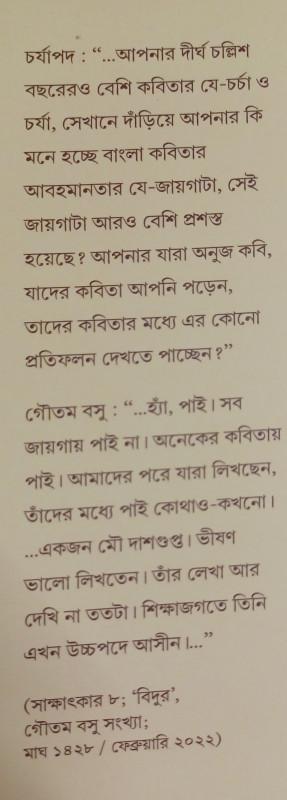 চর্যাপদ : “...আপনার দীর্ঘ চল্লিশ
বছরেরও বেশি কবিতার যে-চর্চা ও
চর্যা, সেখানে দাঁড়িয়ে আপনার কি
মনে হচ্ছে বাংলা কবিতার
আবহমানতার যে-জায়গাটা, সেই
জায়গাটা আরও বেশি প্রশস্ত
হয়েছে? আপনার যারা অনুজ কবি,
যাদের কবিতা আপনি পড়েন,
তাদের কবিতার মধ্যে এর কোনো
প্রতিফলন দেখতে পাচ্ছেন?”
গৌতম বসু : “...হ্যাঁ, পাই। সব
জায়গায় পাই না। অনেকের কবিতায়
পাই। আমাদের পরে যারা লিখছেন,
তাঁদের মধ্যে পাই কোথাও-কখনো।
...একজন মৌ দাশগুপ্ত। ভীষণ
ভালো লিখতেন। তাঁর লেখা আর
দেখি না ততটা। শিক্ষাজগতে তিনি
এখন উচ্চপদে আসীন।...”
(সাক্ষাৎকার ৮; ‘বিদুর’,
গৌতম বসু সংখ্যা;
মাঘ ১৪২৮ / ফেব্রুয়ারি ২০২২)